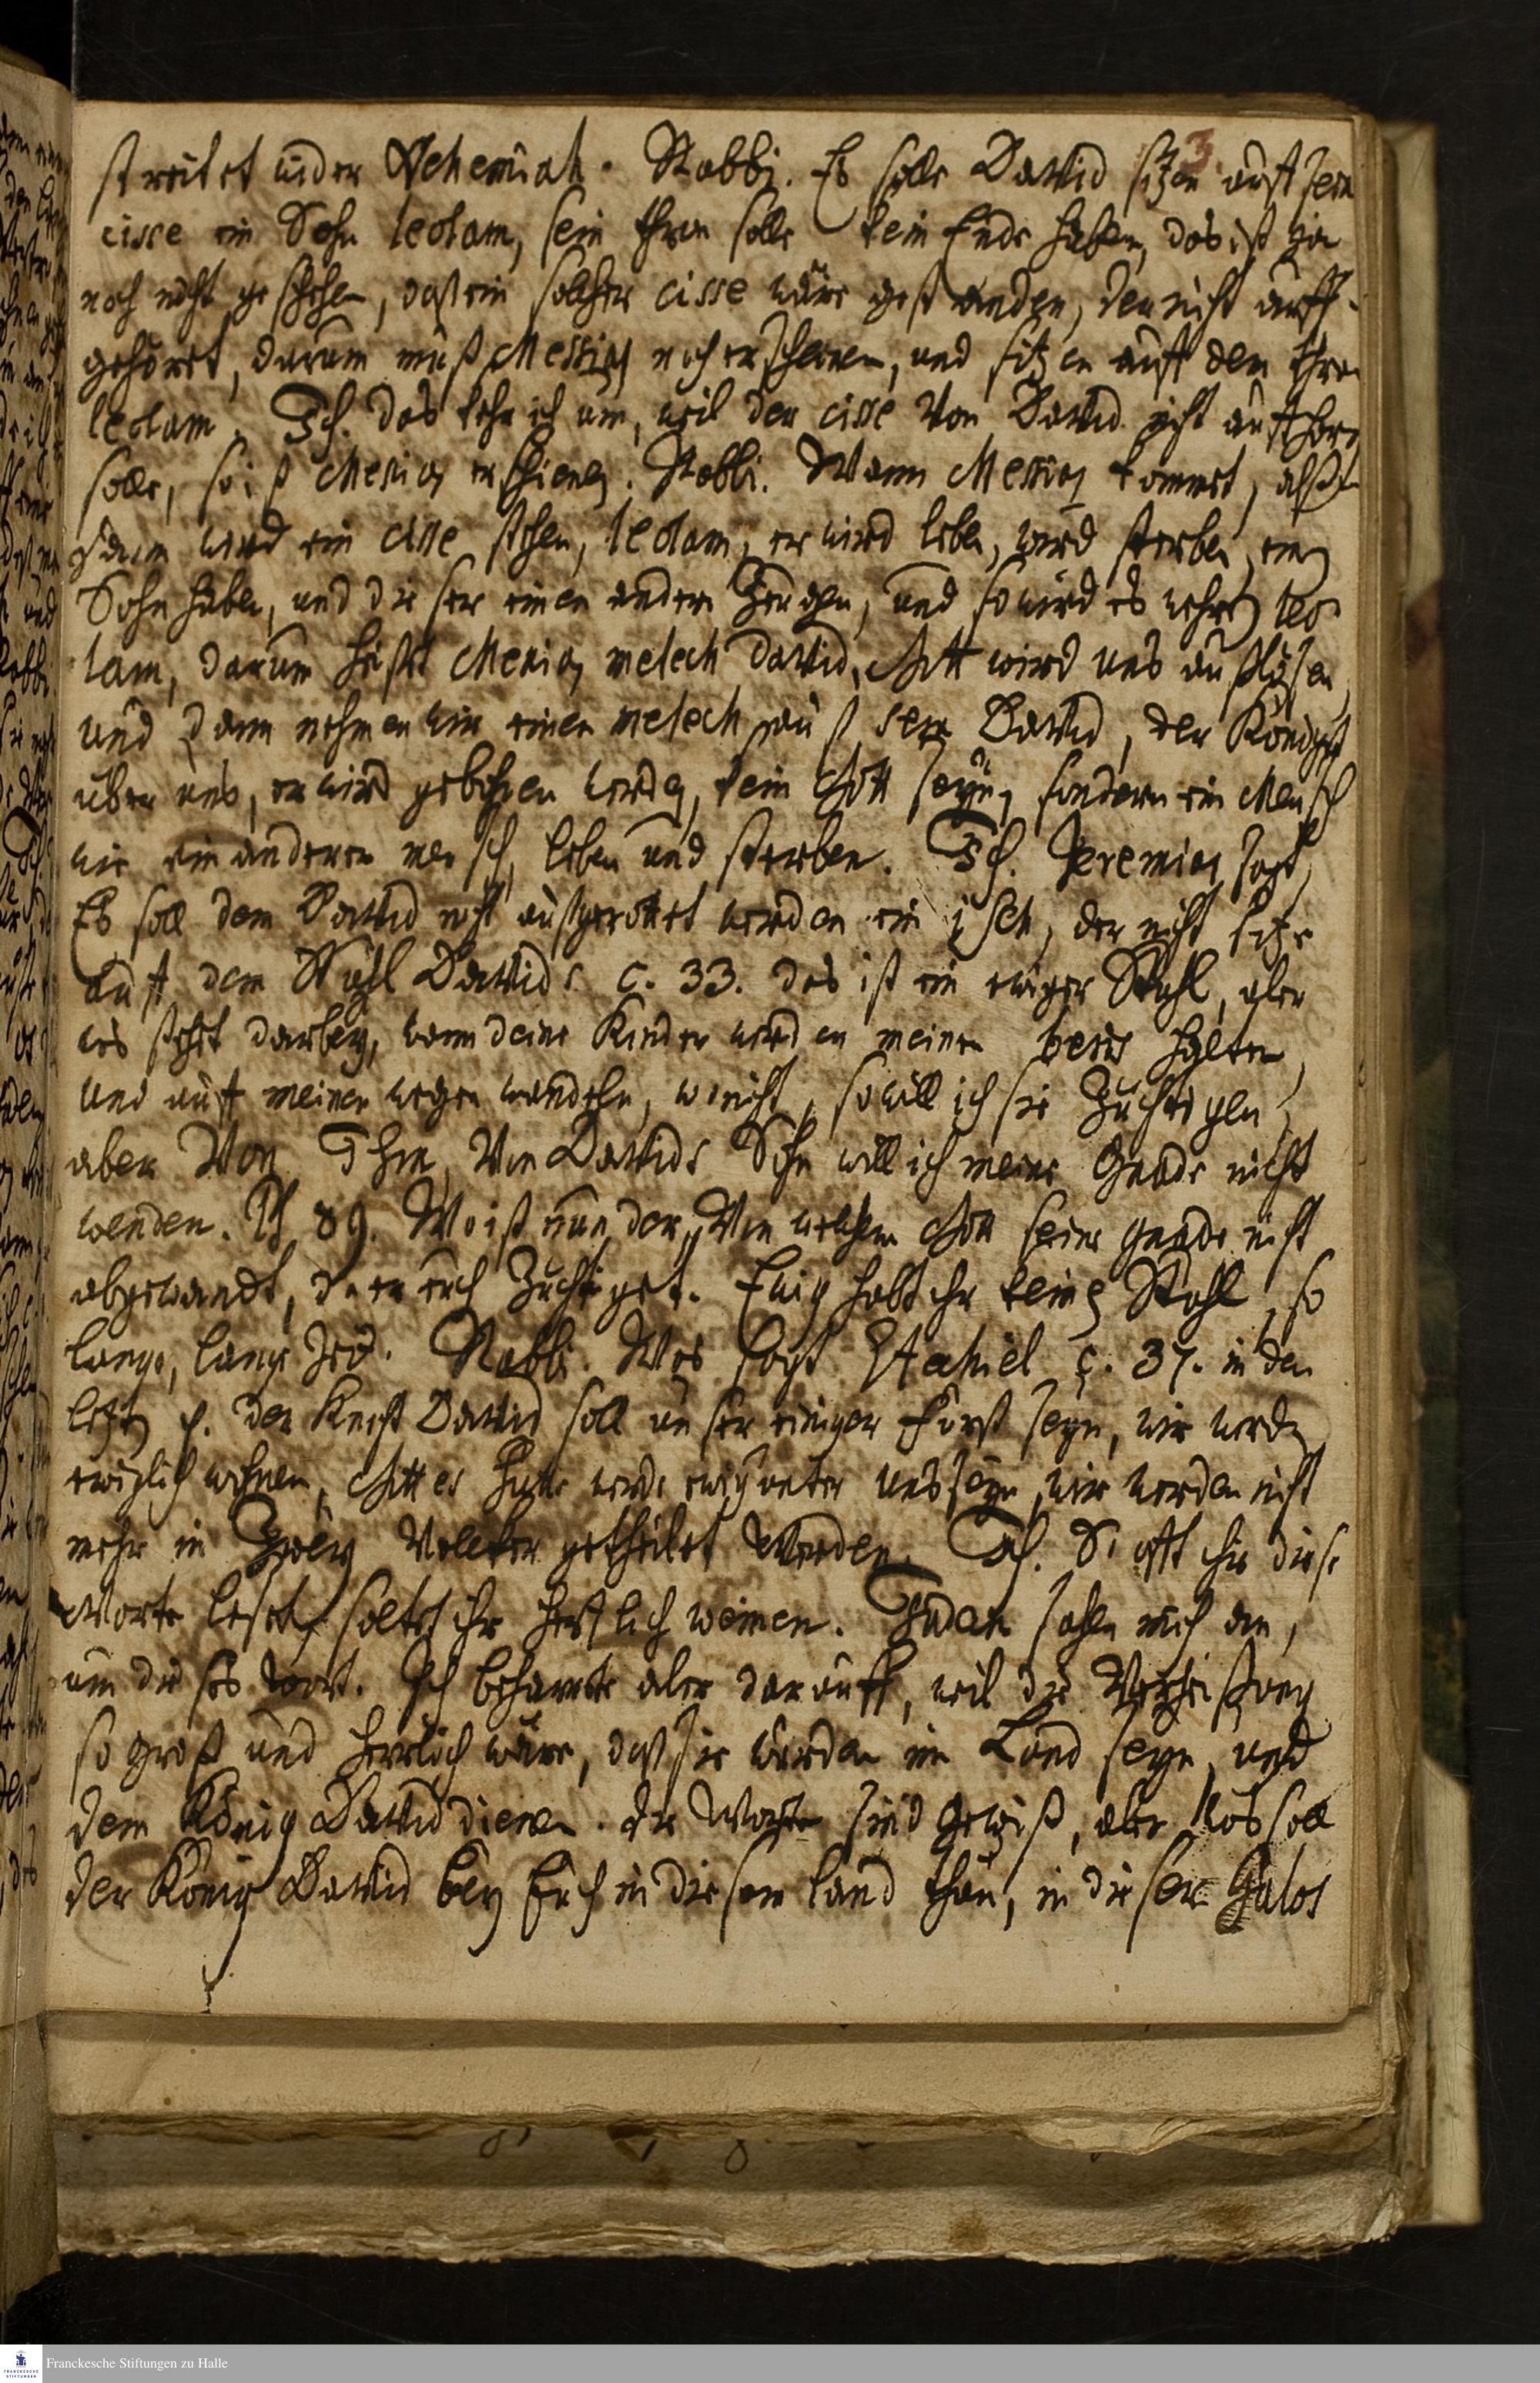 3.
streitet wider Nehemiah. Rabbi. Es solle David sitzen auff sein
cisse ein Sohn leolam, sein thron solle kein Ende haben, das ist ja
noch nicht geschehen, daß ein solcher cisse wäre gestanden, der nicht auff-
gehöret, darum muß Messias noch erscheinen, und sitzen auff dem thron
leolam. Ich. das kehr ich um, weil der cisse von David nicht auffhören
solle, so ist Messias erschienen. Rabbi. Wann Messias kommet, alß
dann wird ein cisse stehen, leolam, er wird leben, wird sterben, ein
Sohn haben, und dieser einen andern Zeugen, und so wird es wehren leo-
lam, darum heist Messias melech David, Gott wird uns außlösen,
und dann nehmen wir einen melech auß sera David, der König ist
über uns, er wird gebohren werden, kein Gott seyn, sondern ein Mensch
wie ein anderer mensch, leben und sterben. Ich. Jeremias sagt,
Es soll dem David nicht außgerottet werden ein isch, der nicht sitze
auff dem Stuhl Davids c. 33. das ist ein ewiger Stuhl, aber
was stehet darbey, wann deine Kinder werden meinen beris halten,
und auff meinen wegen wandeln, wo nicht, so will ich sie Züchtigen,
aber Von Ihm, Von Davids Sohn will ich meine Gnade nicht
wenden. Ps 89. Wo ist nun der, Von welchem Gott seine Gnade nicht
abgewandt, da er euch Züchtiget. Ewig habt ihr keinen Stuhl, so
lange, lange Zeit. Rabbi. Was sagt Ezechiel c. 37. in den
letzten v. der Knecht David soll unser einiger Fürst seyn, wir werden
ewiglich wohnen, Gottes Hütte werde ewig unter uns seyn, wir werden nicht
mehr in Zwey Völcker getheilet werden. Ich. So offt ihr diese
Worte leset, soltet ihr hertzlich weinen. Juden sahen mich an,
um dieses wort. Ich beharrte aber darauff, weil die Verheißung
so groß und herrlich wäre, daß sie würden im Land seyn, und
dem König David dienen. die Worte sind gewiß, aber was soll
der König David bey Euch in diesem land thun, in dieser Galos
Franckesche Stiftungen zu Halle